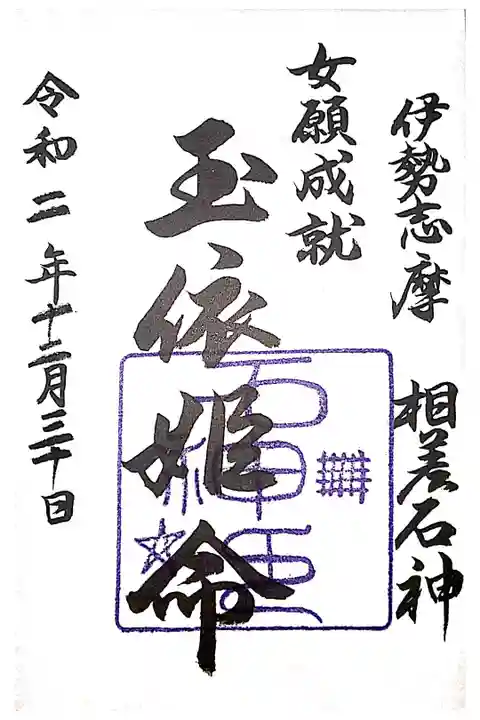 伊勢志摩 相差石神
女願成就
玉依姫命
石神
令和二年十二月三十日